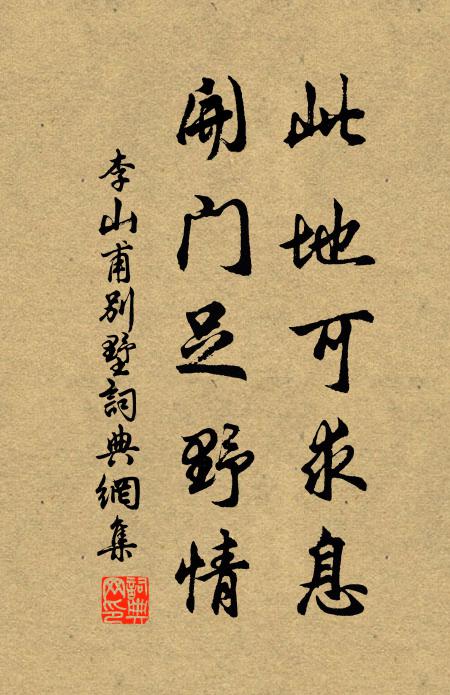 此地可求息
開門足野情
李山甫別墅詞典網集
詞典網印